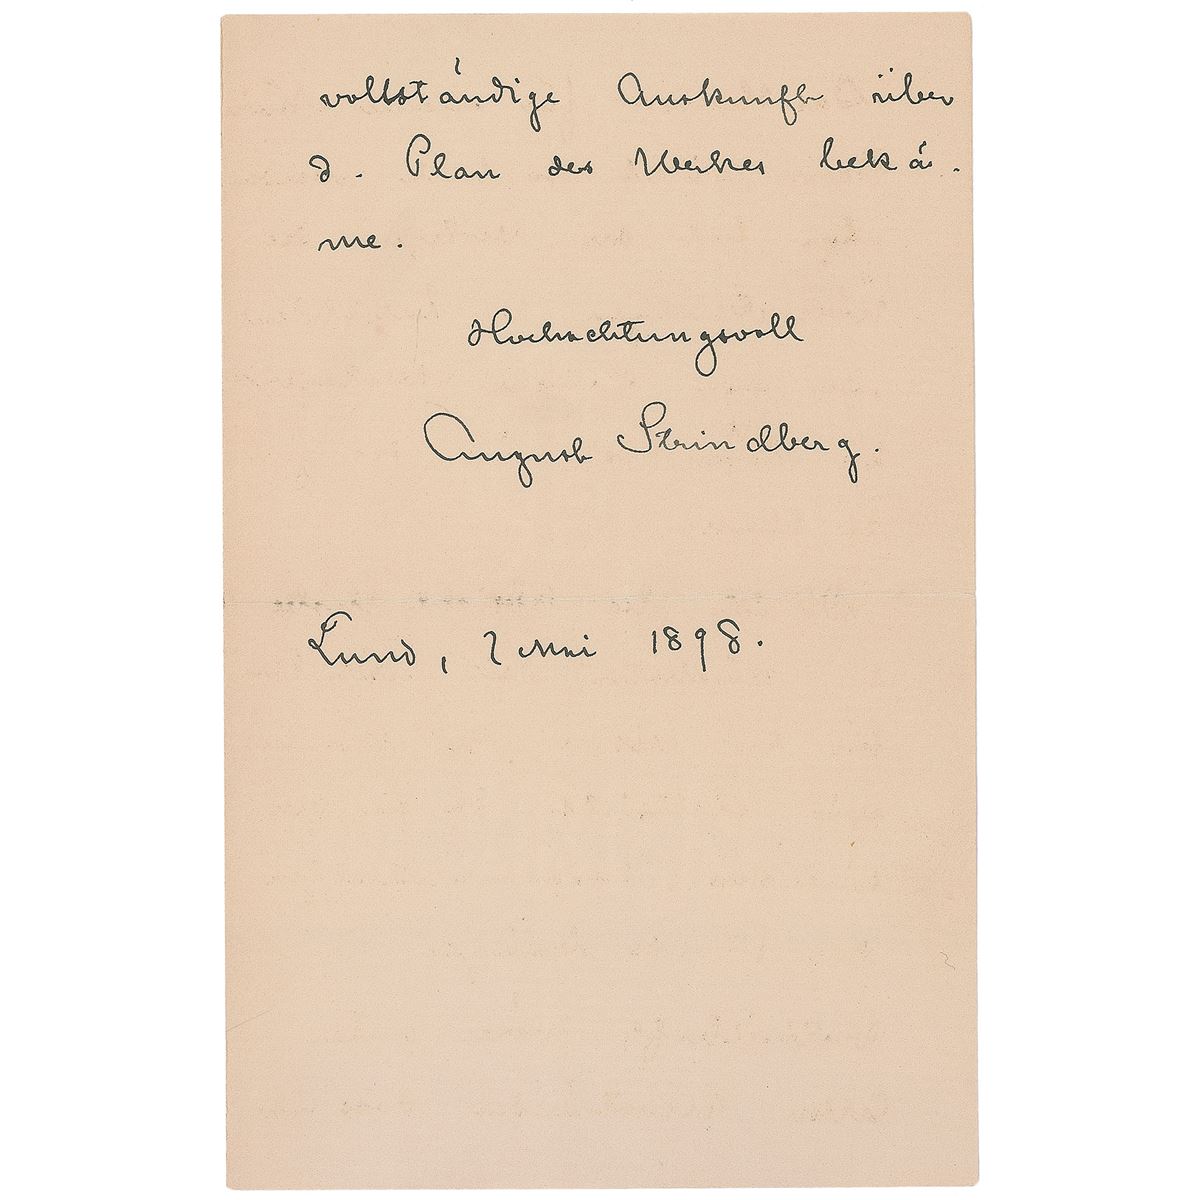 vollständige Auskunft über
d. Plan des Werkes bekä-
me.
Hochachtungsvoll
August Strindberg.
Lund, 2 Mai 1898.